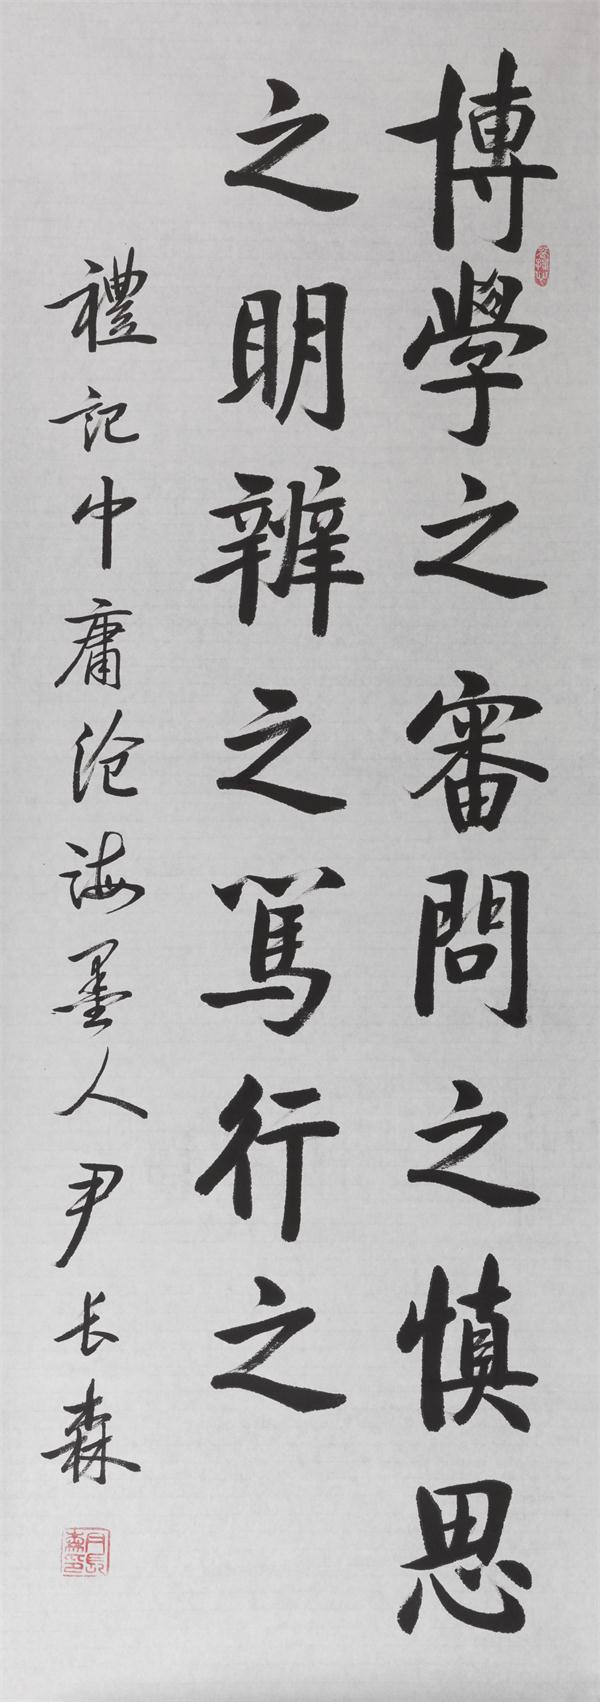 博學之審問之慎思
之明辨之篤行之
禮記中庸滄海墨人尹长森